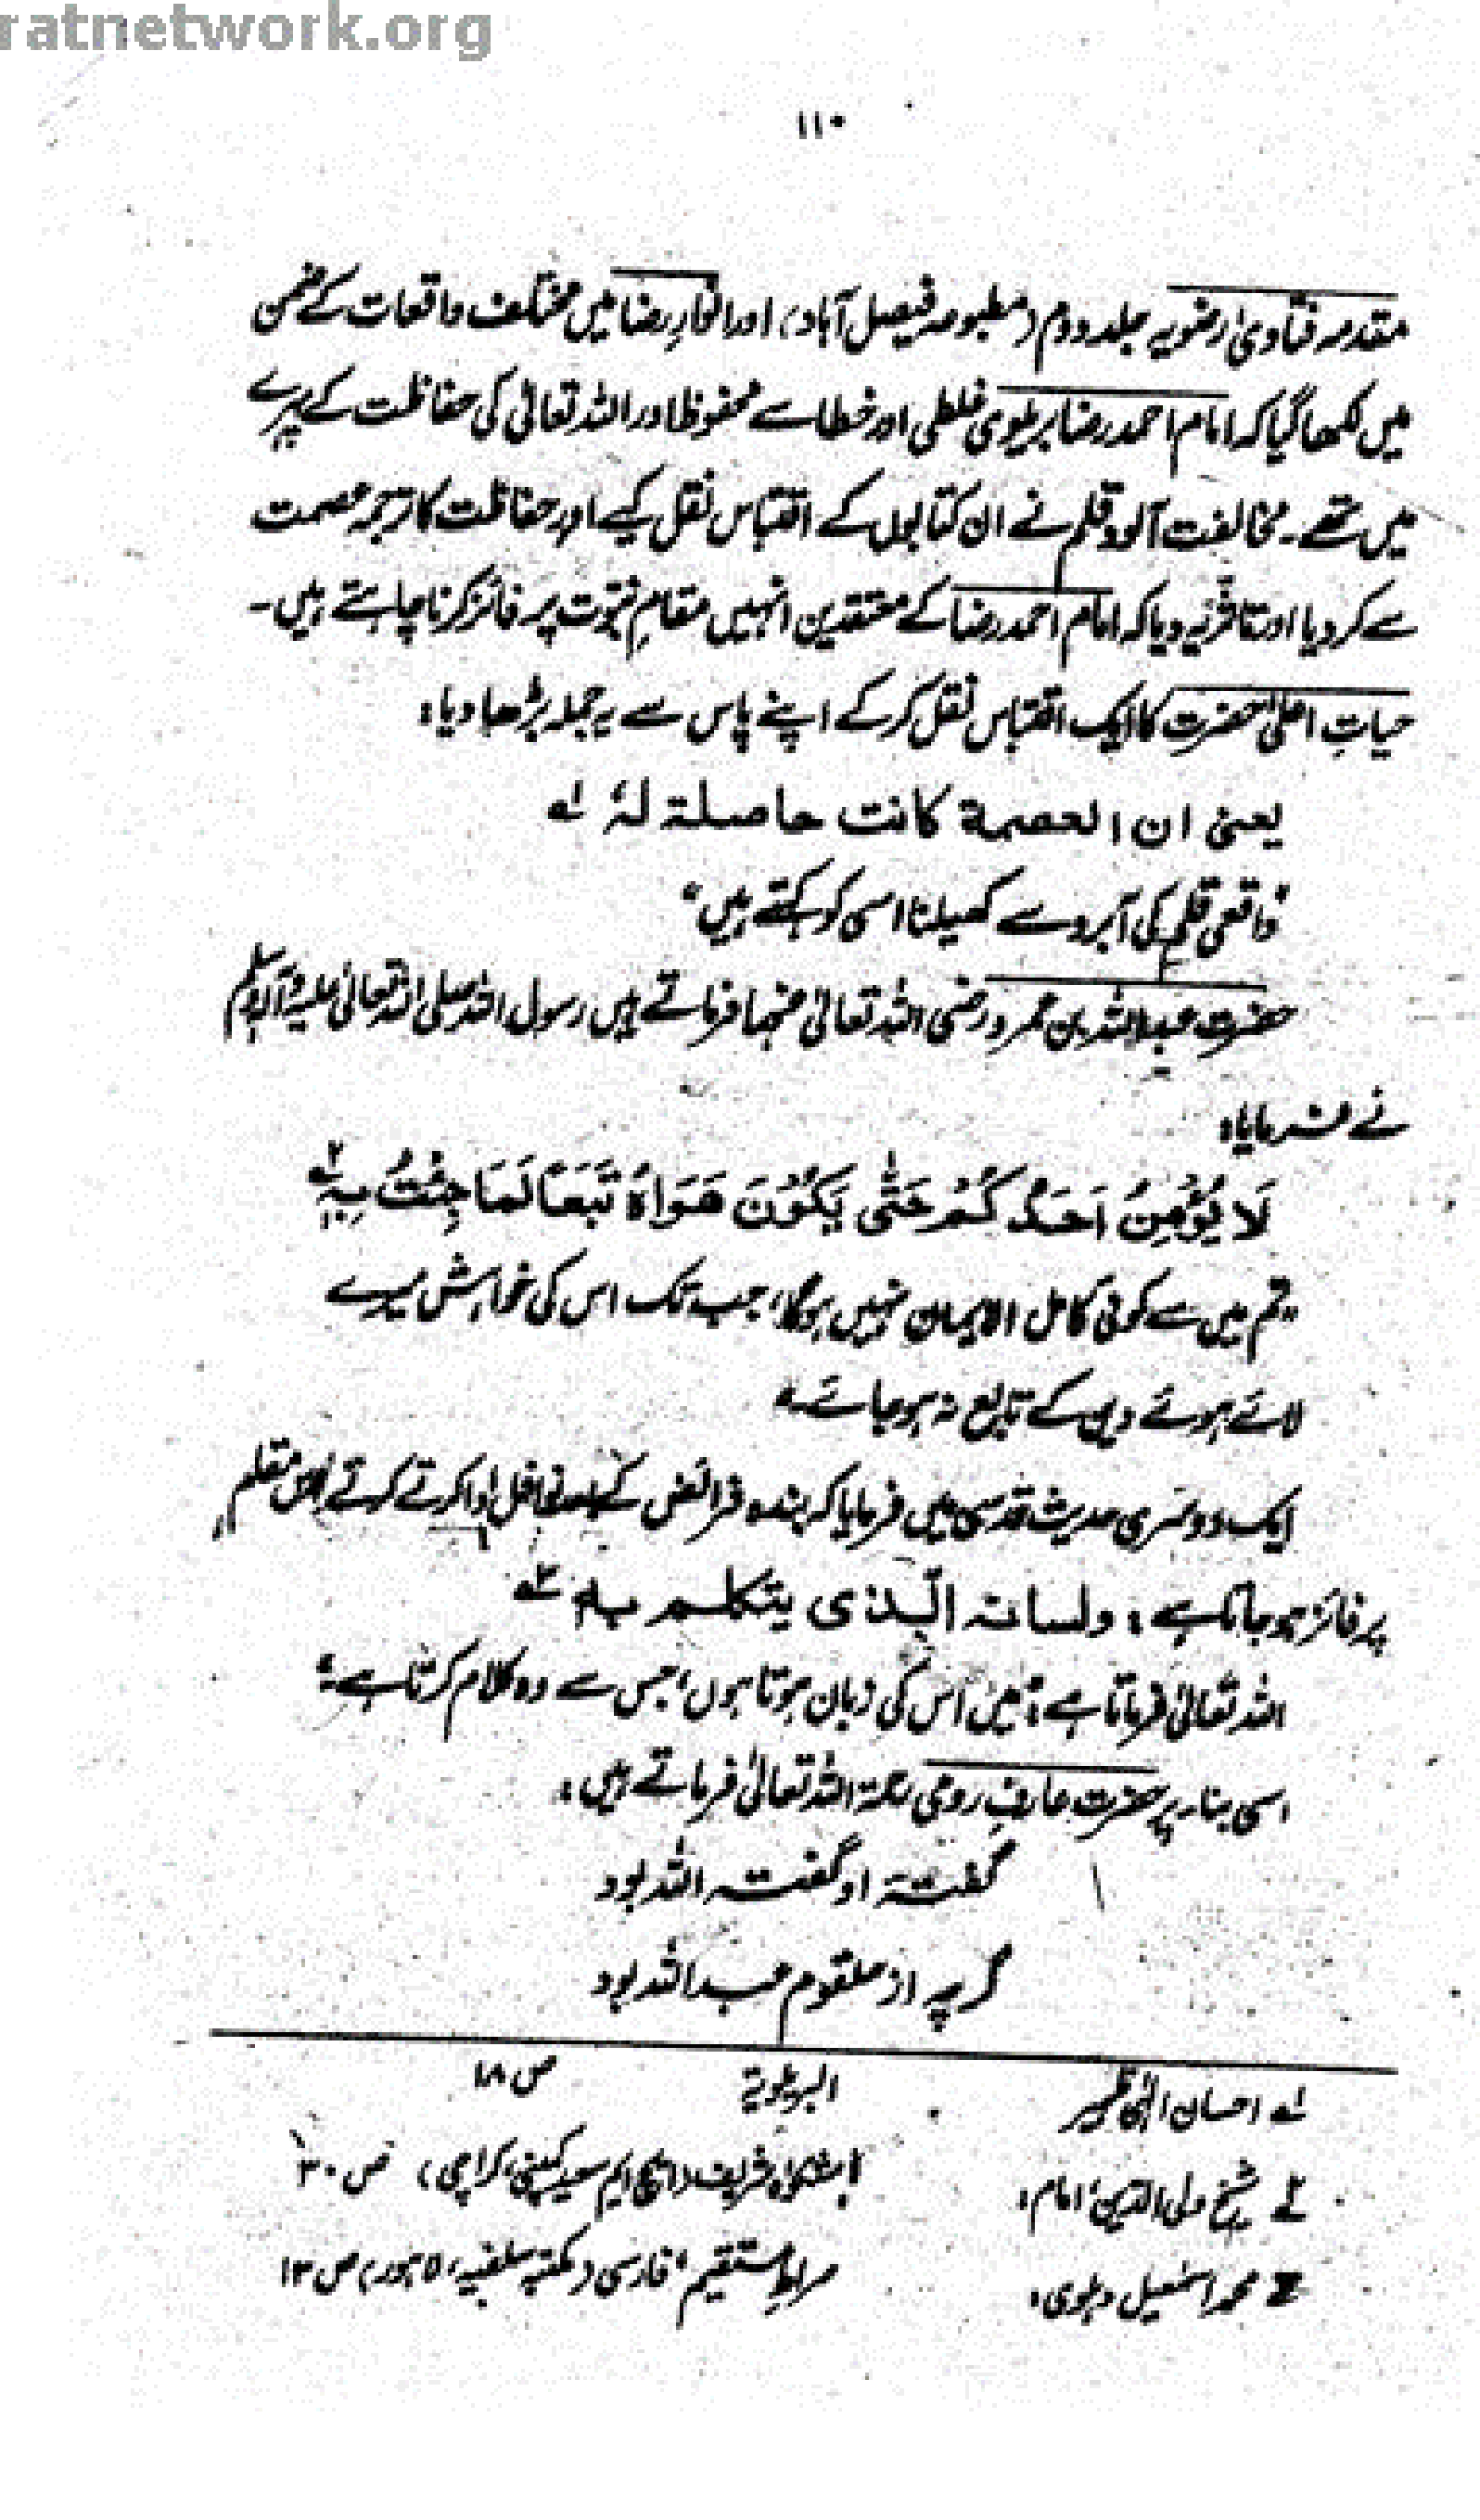 ratnetwork.org
۱۱۰
مقدمہ فتاویٰ رضویہ جلد دوم (مطبوعہ فیصل آباد) اور انوارِ رضا میں مختلف واقعات کے ضمن
میں لکھا گیا کہ امام احمد رضا بریلوی غلطی اور خطا سے محفوظ اور اللہ تعالیٰ کی حفاظت کے پہرے
میں تھے۔ مخالفت آلود قلم نے ان کتابوں کے اقتباس نقل کیے اور حفاظت کا ترجمہ عصمت
سے کر دیا اور تاثر یہ دیا کہ امام احمد رضا کے معتقدین انہیں مقامِ نبوّت پر فائز کرنا چاہتے ہیں۔
حیاتِ اعلیٰحضرت کا ایک اقتباس نقل کر کے اپنے پاس سے یہ جملہ بڑھا دیا:
یعنی ان العصمة کانت حاصلة لہٗ ۱ے
"واقعی قلم کی آبرو سے کھیلنا اسی کو کہتے ہیں"
حضرت عبداللہ بن عمرو رضی اللہ تعالیٰ عنہما فرماتے ہیں رسول اللہ صلی اللہ تعالیٰ علیہ وآلہٖ وسلم
نے فرمایا:
لَا یُؤْمِنُ اَحَدُ کُمْ حَتّٰی یَکُوْنَ ھَوَاہُ تَبَعًا لِّمَا جِئْتُ بِہٖ ۲ے
"تم میں سے کوئی کامل الایمان نہیں ہوگا، جب تک اس کی خواہش میرے
لائے ہوئے دین کے تابع نہ ہو جائے۔"
ایک دوسری حدیث قدسی میں فرمایا کہ بندہ فرائض کے بعد نوافل ادا کرتے کرتے اس مقام
پر فائز ہو جاتا ہے: ولسانہ الّذی یتکلم بہ ۳ے
اللہ تعالیٰ فرماتا ہے: "میں اس کی زبان ہوتا ہوں، جس سے وہ کلام کرتا ہے"
اسی بناء پر حضرت عارفِ رومی رحمۃ اللہ تعالیٰ فرماتے ہیں:
گفتۂ او گفتہ اللہ بود
گرچہ از حلقوم عبداللہ بود
۱ے احسان الٰہی ظہیر البریلویۃ ص ۱۸
۲ے شیخ ولی الدین، امام: مشکوٰۃ شریف (ایچ ایم سعید کمپنی، کراچی) ص ۳۰
۳ے محمد اسمٰعیل دہلوی: صراطِ مستقیم، فارسی (مکتبہ سلفیہ، لاہور) ص ۱۳